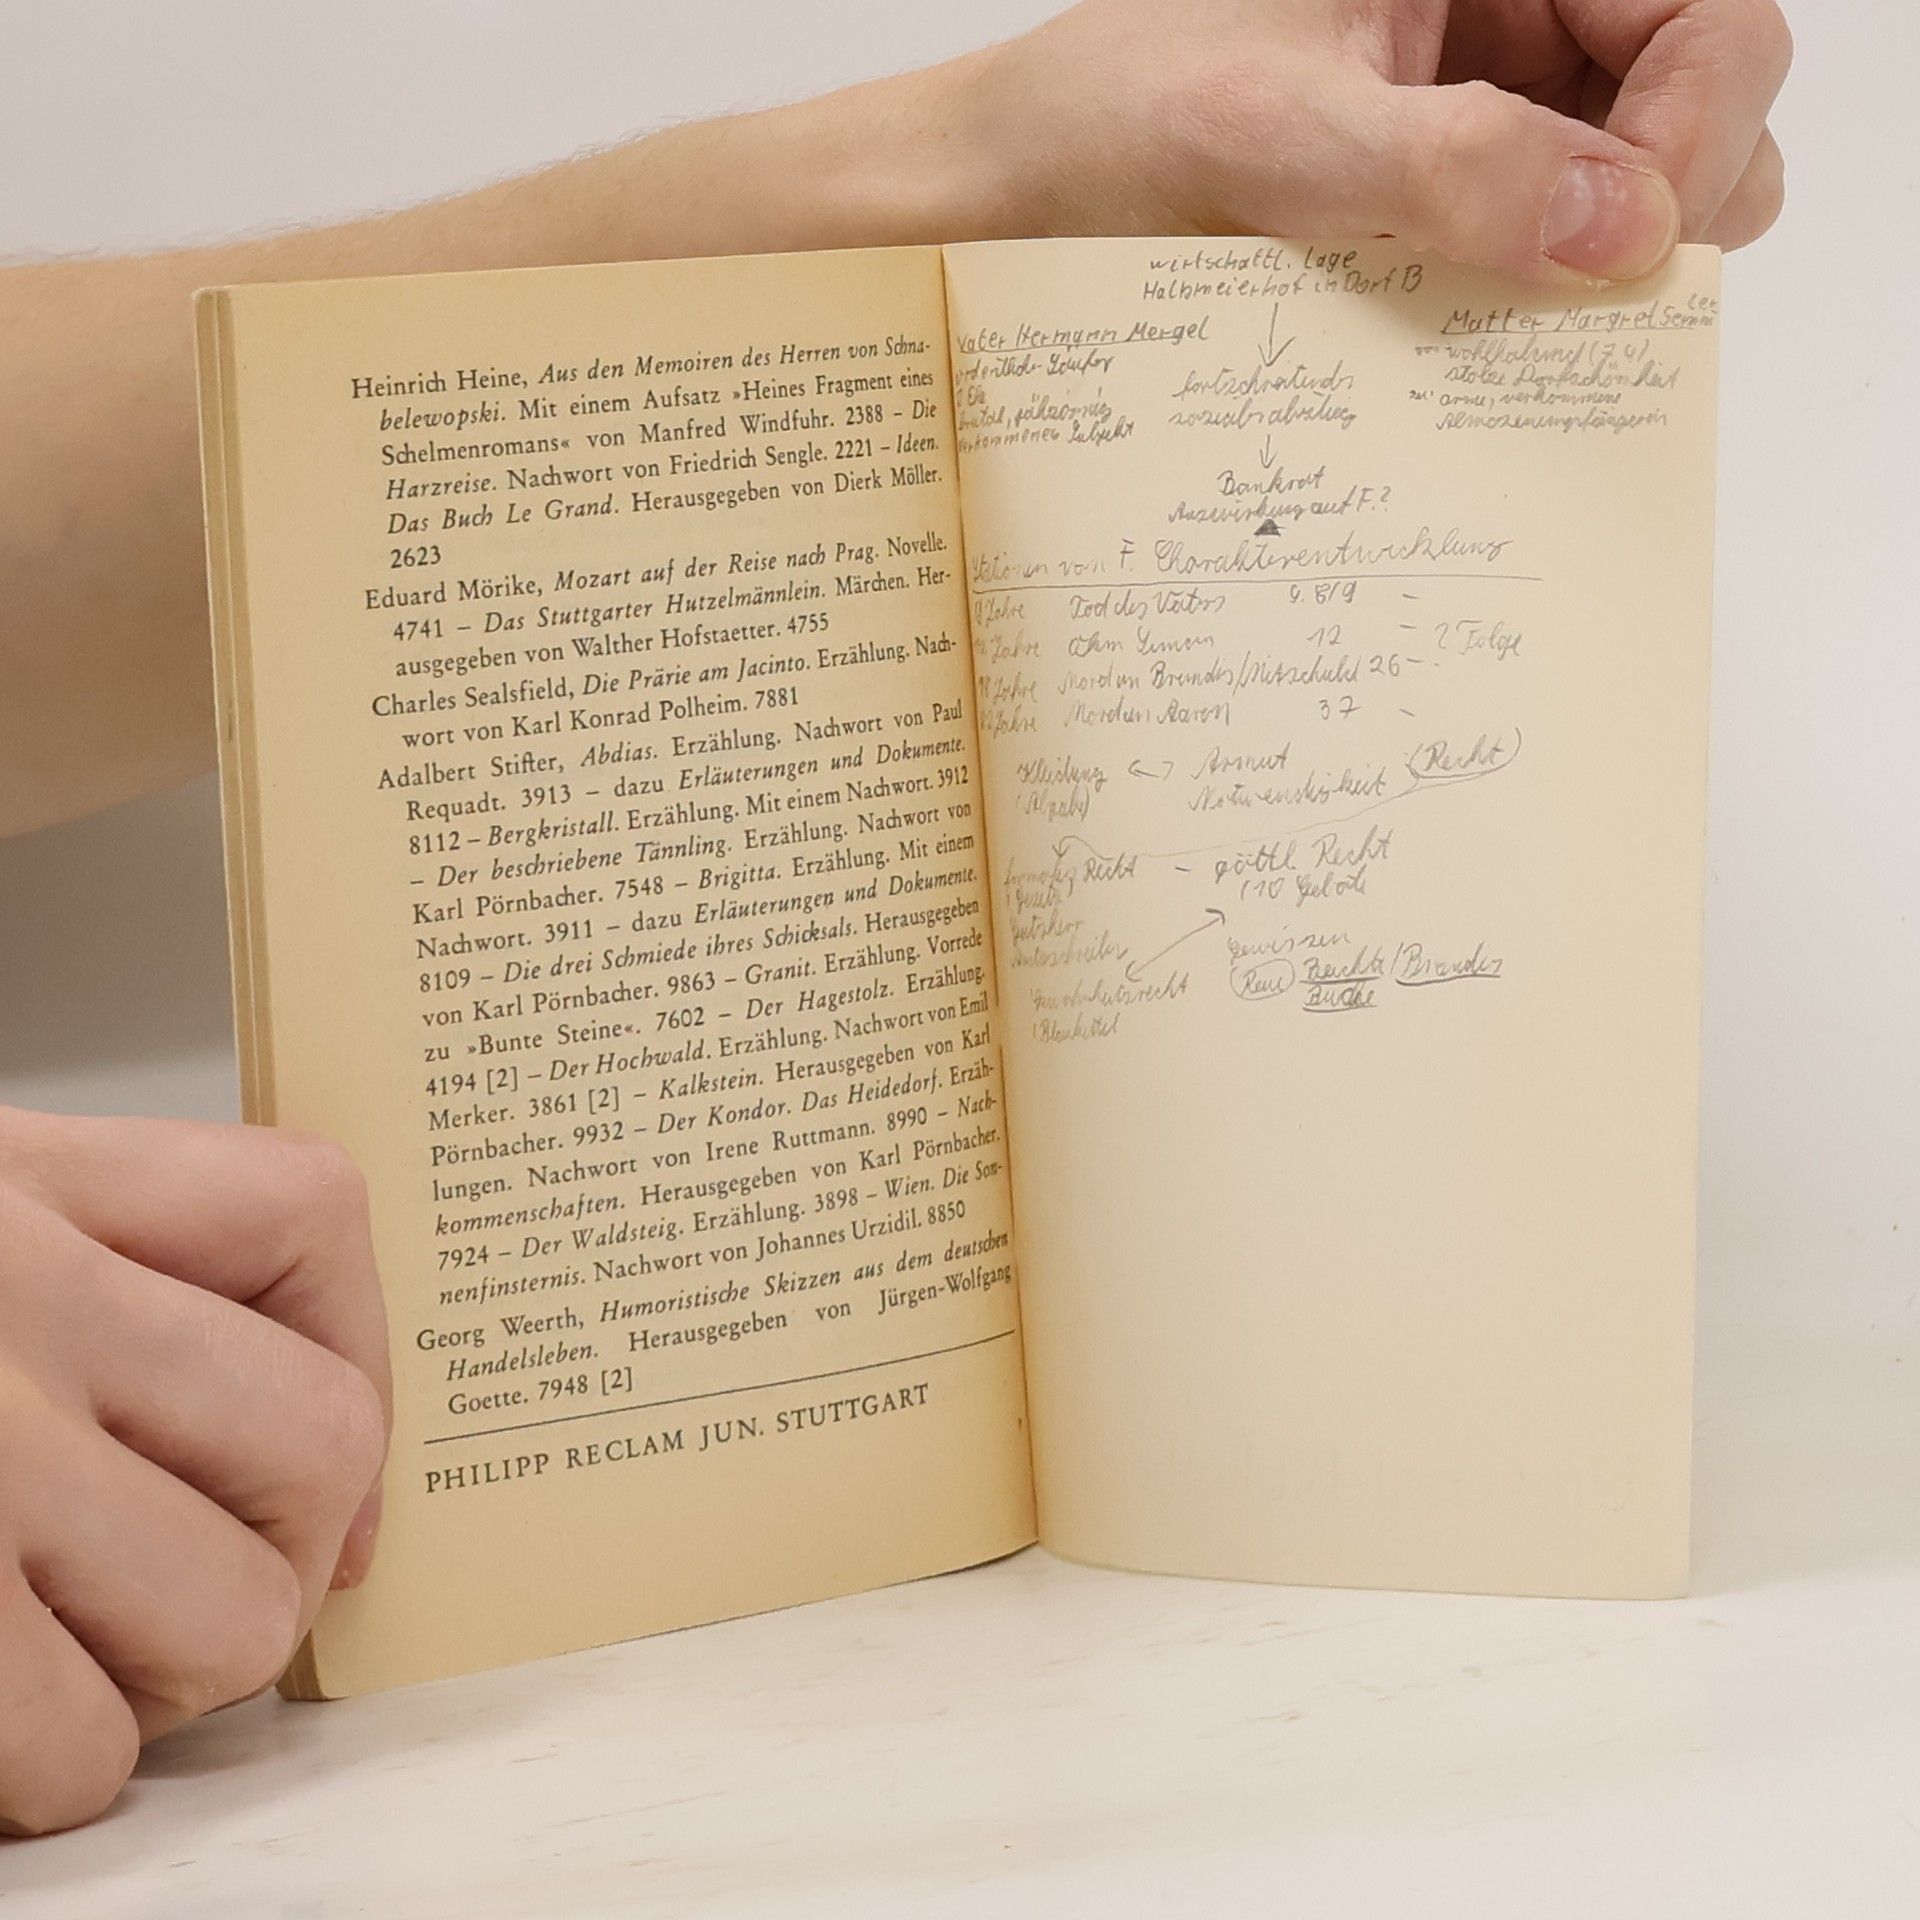 Heinrich Heine, Aus den Memoiren des Herren von Schna-
belewopski. Mit einem Aufsatz »Heines Fragment eines
Schelmenromans« von Manfred Windfuhr. 2388 – Die
Harzreise. Nachwort von Friedrich Sengle. 2221 – Ideen.
Das Buch Le Grand. Herausgegeben von Dierk Möller.
2623
Eduard Mörike, Mozart auf der Reise nach Prag. Novelle.
4741 – Das Stuttgarter Hutzelmännlein. Märchen. Her-
ausgegeben von Walther Hofstaetter. 4755
Charles Sealsfield, Die Prärie am Jacinto. Erzählung. Nach-
wort von Karl Konrad Polheim. 7881
Adalbert Stifter, Abdias. Erzählung. Nachwort von Paul
Requadt. 3913 – dazu Erläuterungen und Dokumente.
8112 – Bergkristall. Erzählung. Mit einem Nachwort. 3912
– Der beschriebene Tännling. Erzählung. Nachwort von
Karl Pörnbacher. 7548 – Brigitta. Erzählung. Mit einem
Nachwort. 3911 – dazu Erläuterungen und Dokumente.
8109 – Die drei Schmiede ihres Schicksals. Herausgegeben
von Karl Pörnbacher. 9863 – Granit. Erzählung. Vorrede
zu »Bunte Steine«. 7602 – Der Hagestolz. Erzählung.
4194 [2] – Der Hochwald. Erzählung. Nachwort von Emil
Merker. 3861 [2] – Kalkstein. Herausgegeben von Karl
Pörnbacher. 9932 – Der Kondor. Das Heidedorf. Erzäh-
lungen. Nachwort von Irene Ruttmann. 8990 – Nach-
kommenschaften. Herausgegeben von Karl Pörnbacher.
7924 – Der Waldsteig. Erzählung. 3898 – Wien. Die Son-
nenfinsternis. Nachwort von Johannes Urzidil. 8850
Georg Weerth, Humoristische Skizzen aus dem deutschen
Handelsleben. Herausgegeben von Jürgen-Wolfgang
Goette. 7948 [2]
PHILIPP RECLAM JUN. STUTTGART
wirtschaftl. Lage
Halbmeierhof in Dorf B
Vater Hermann Mergel
ordentlicher Säufer
2 Ehe
brutal, jähzornig
verkommenes Subjekt
fortschreitender
sozialer abstieg
Bankrot
Auswirkung auf F.?
Mutter Margret Semmler
von wohlhabend (7,4)
stolze Dorfschönheit
zu arme, verkommene
Almosenempfängerin
Stationen von F. Charakterentwicklung
9 Jahre Tod des Vaters S. 8/9 –
12 Jahre Ohm Simon 12 – ? Folge
18 Jahre Mord an Brandis/Mitschuld 26 –
Jahre Mord an Aaron 37 –
Kleidung ↔ Armut
Notwendigkeit
(Recht)
Recht – göttl Recht
(10 Gebote
Gesetz
Gutsherr
Amtsschreiber
Gewohnheitsrecht
Gewissen
Reue Beichte / Brandis
Buche